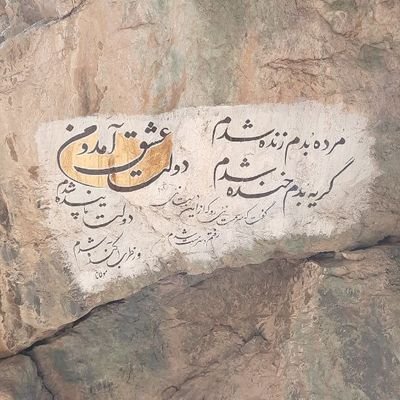 مرده بُدم زنده شدم
گریه بُدم خنده شدم
دولت عشق آمد و من
دولت پاینده شدم
گفت که سرمست نیی رو که از این دست نیی
رفتم و سرمست شدم
وز طرب آکنده شدم
مولانا